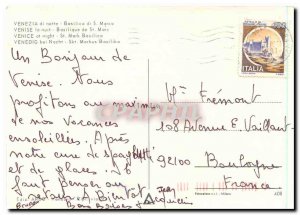 VENEZIA di notte - Basilica di S. Marco
VENISE la nuit - Basilique de St. Marc
VENICE at night - St. Mark Basilica
VENEDIG bei Nacht - Skt. Markus Basilika
ITALIA
Un Bonjour de
Venise. Nous
profitons au maximum
de nos vacances
ensoleillées. Après
notre cure de spaghetti
et de glaces. il
faut penser au
retour. A Bientôt
Bons Baisers
Mr Frémont
108 Avenue E. Vaillant
92100 Boulogne
France